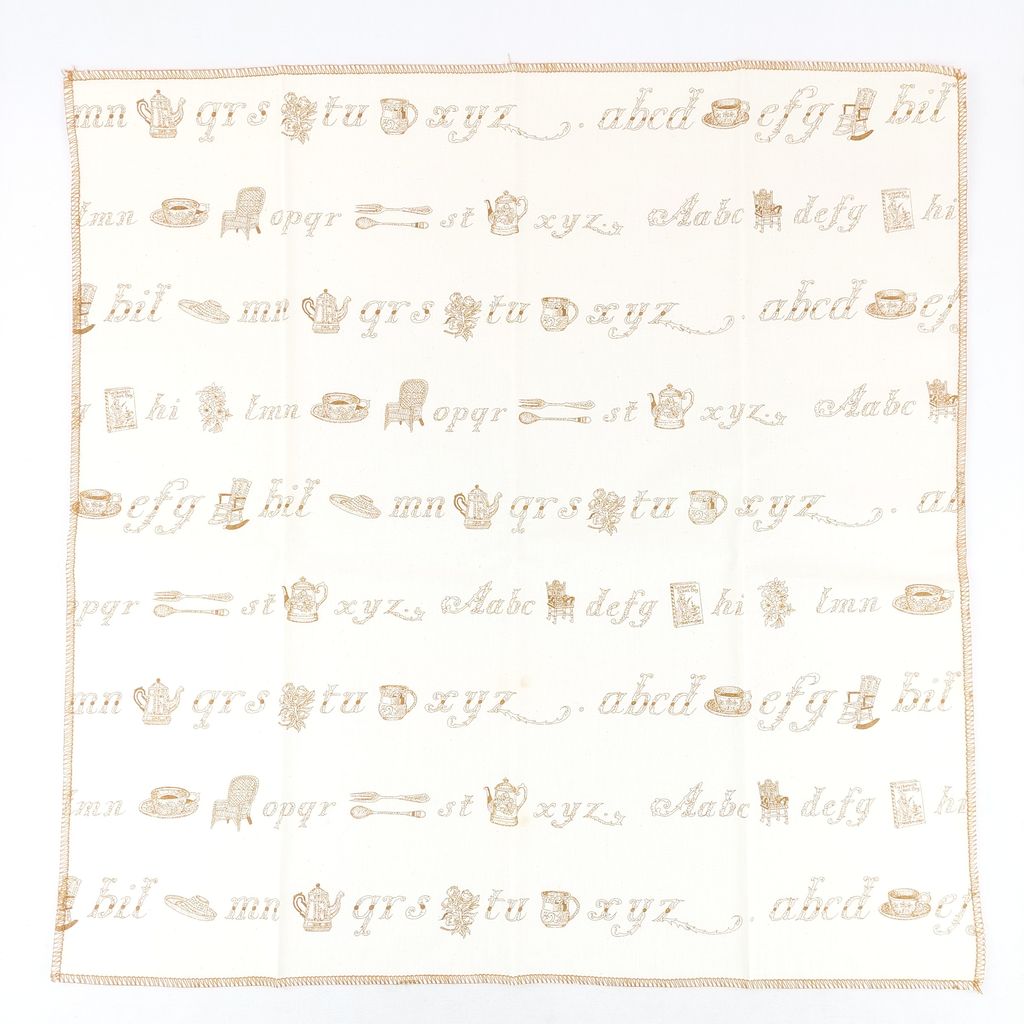 mn qrs tu xyz. abcd efg bil
lmn opqr st xyz. Aabc defg hi
bil mn qrs tu xyz. abcd ef
g hi lmn opqr st xyz. Aabc
efg bil mn qrs tu xyz. ab
opqr st xyz. Aabc defg hi lmn
mn qrs tu xyz. abcd efg bil
lmn opqr st xyz. Aabc defg hi
bil mn qrs tu xyz. abcd ef